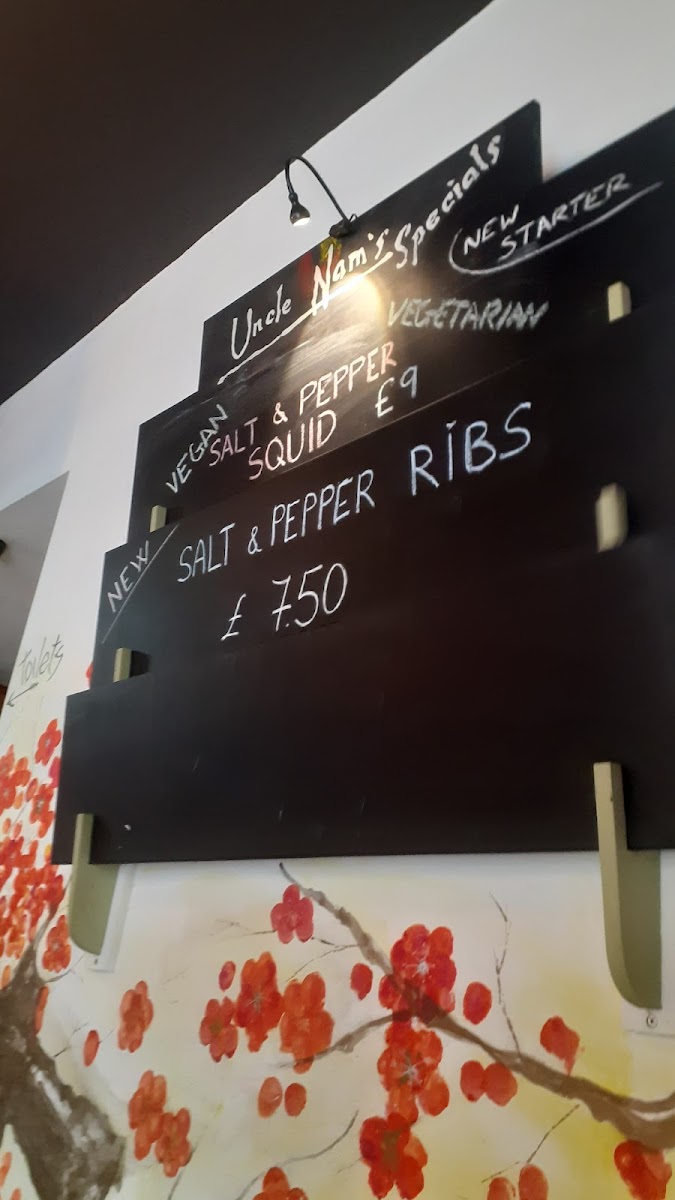 Uncle Nam's Specials
NEW
STARTER
VEGETARIAN
VEGAN
SALT & PEPPER
SQUID £9
NEW
SALT & PEPPER RIBS
£ 7.50
Toilets